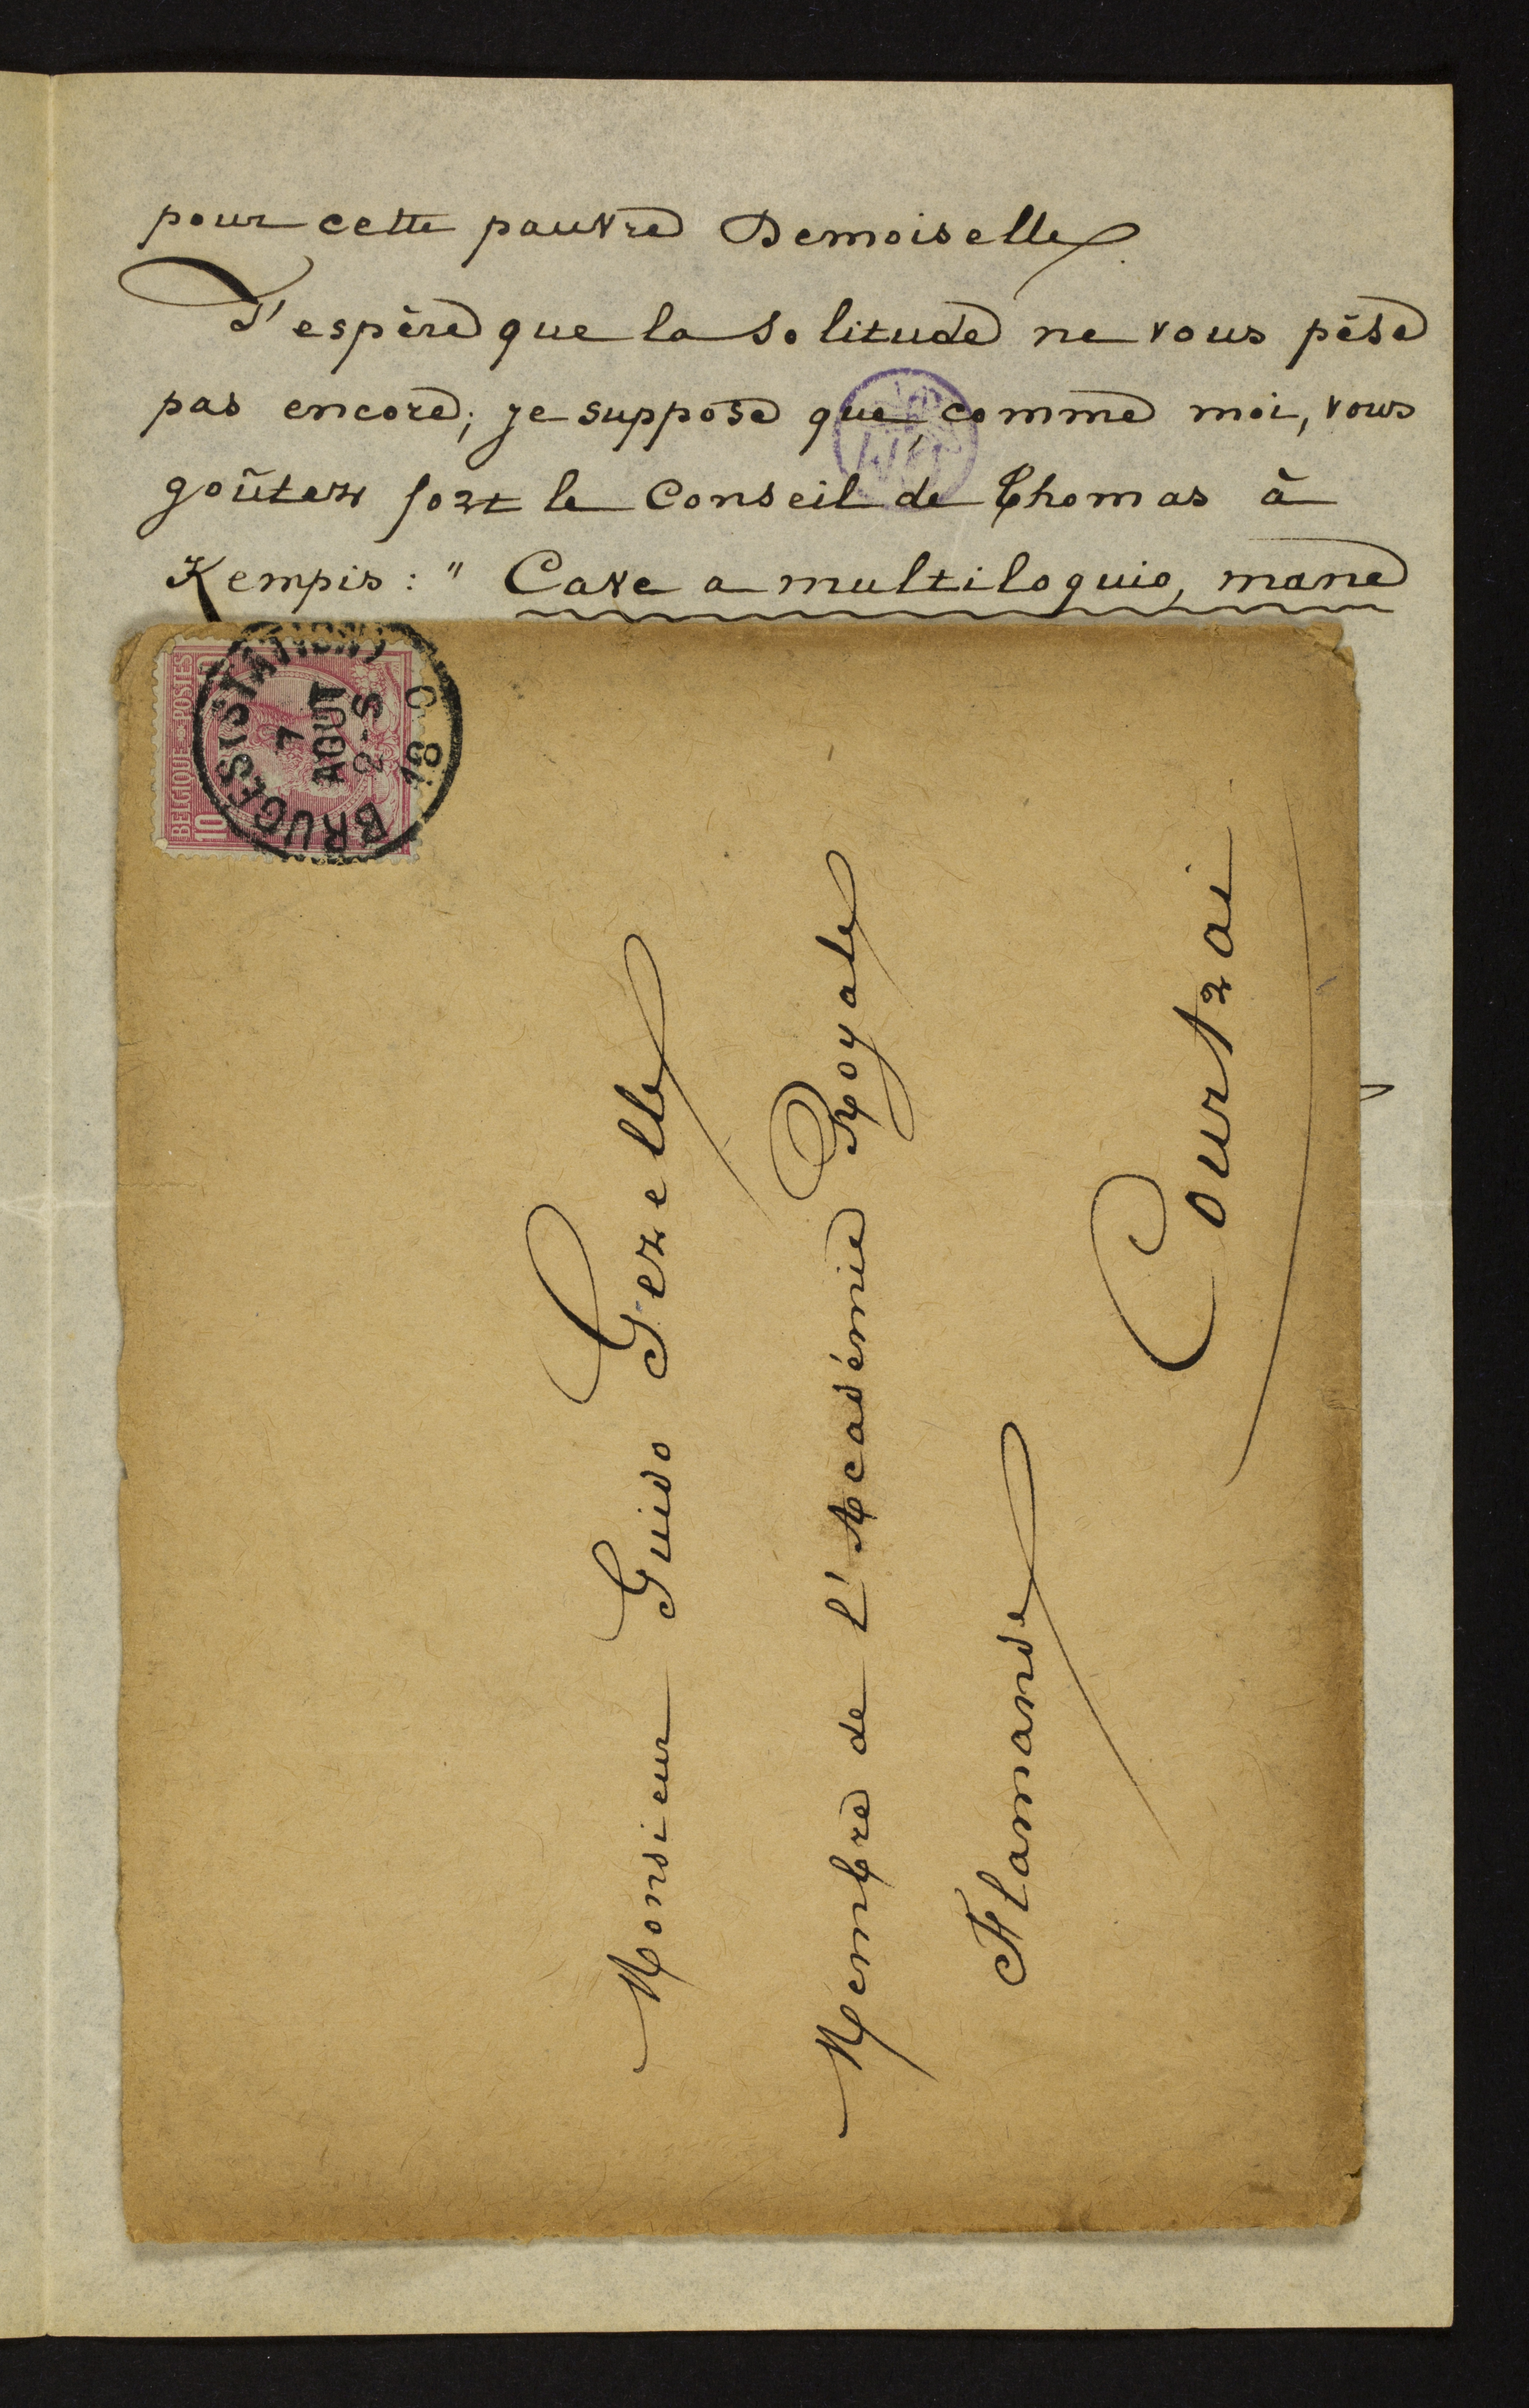 pour cette pauvre Demoiselle.
J'espère que la solitude ne vous pèse
pas encore; je suppose que, comme moi, vous
goûtez fort le Conseil de Thomas à
Kempis: " Cave a multiloquio, mane
BELGIQUE POSTES
10
BRUGES (STATION)
7
AOUT
2-S
18 9
Monsieur Guido Gezelle
Membre de l'Académie Royale
Flamande
Courtrai